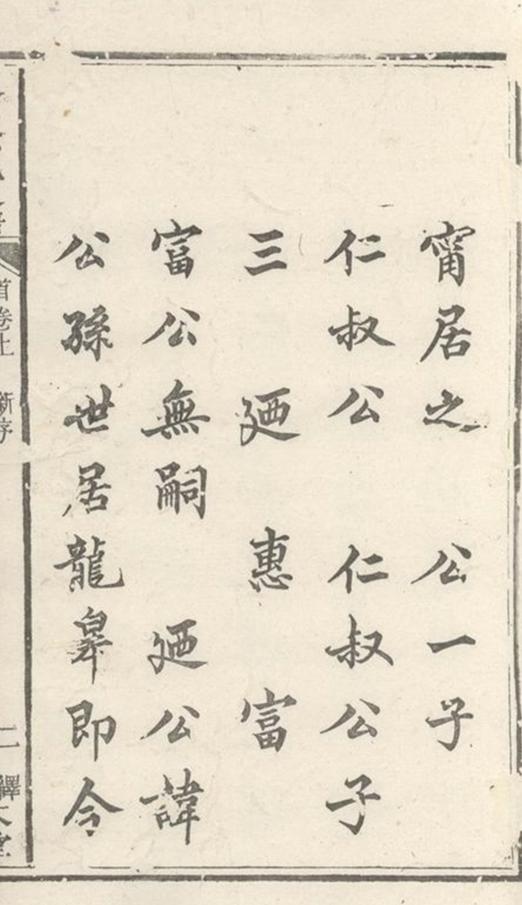 甯居之 公一子
仁叔公 仁叔公子
三 廼 惠 富
富公無嗣 廼公諱
公孫世居龍皐即令
首卷上 新序 二